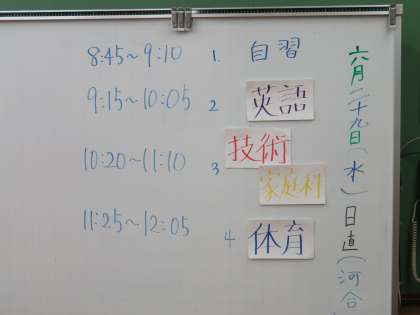 六月二十九日(水)日直(河合
8:45~9:10 1. 自習
9:15~10:05 2 英語
10:20~11:10 3 技術
家庭科
11:25~12:05 4 体育